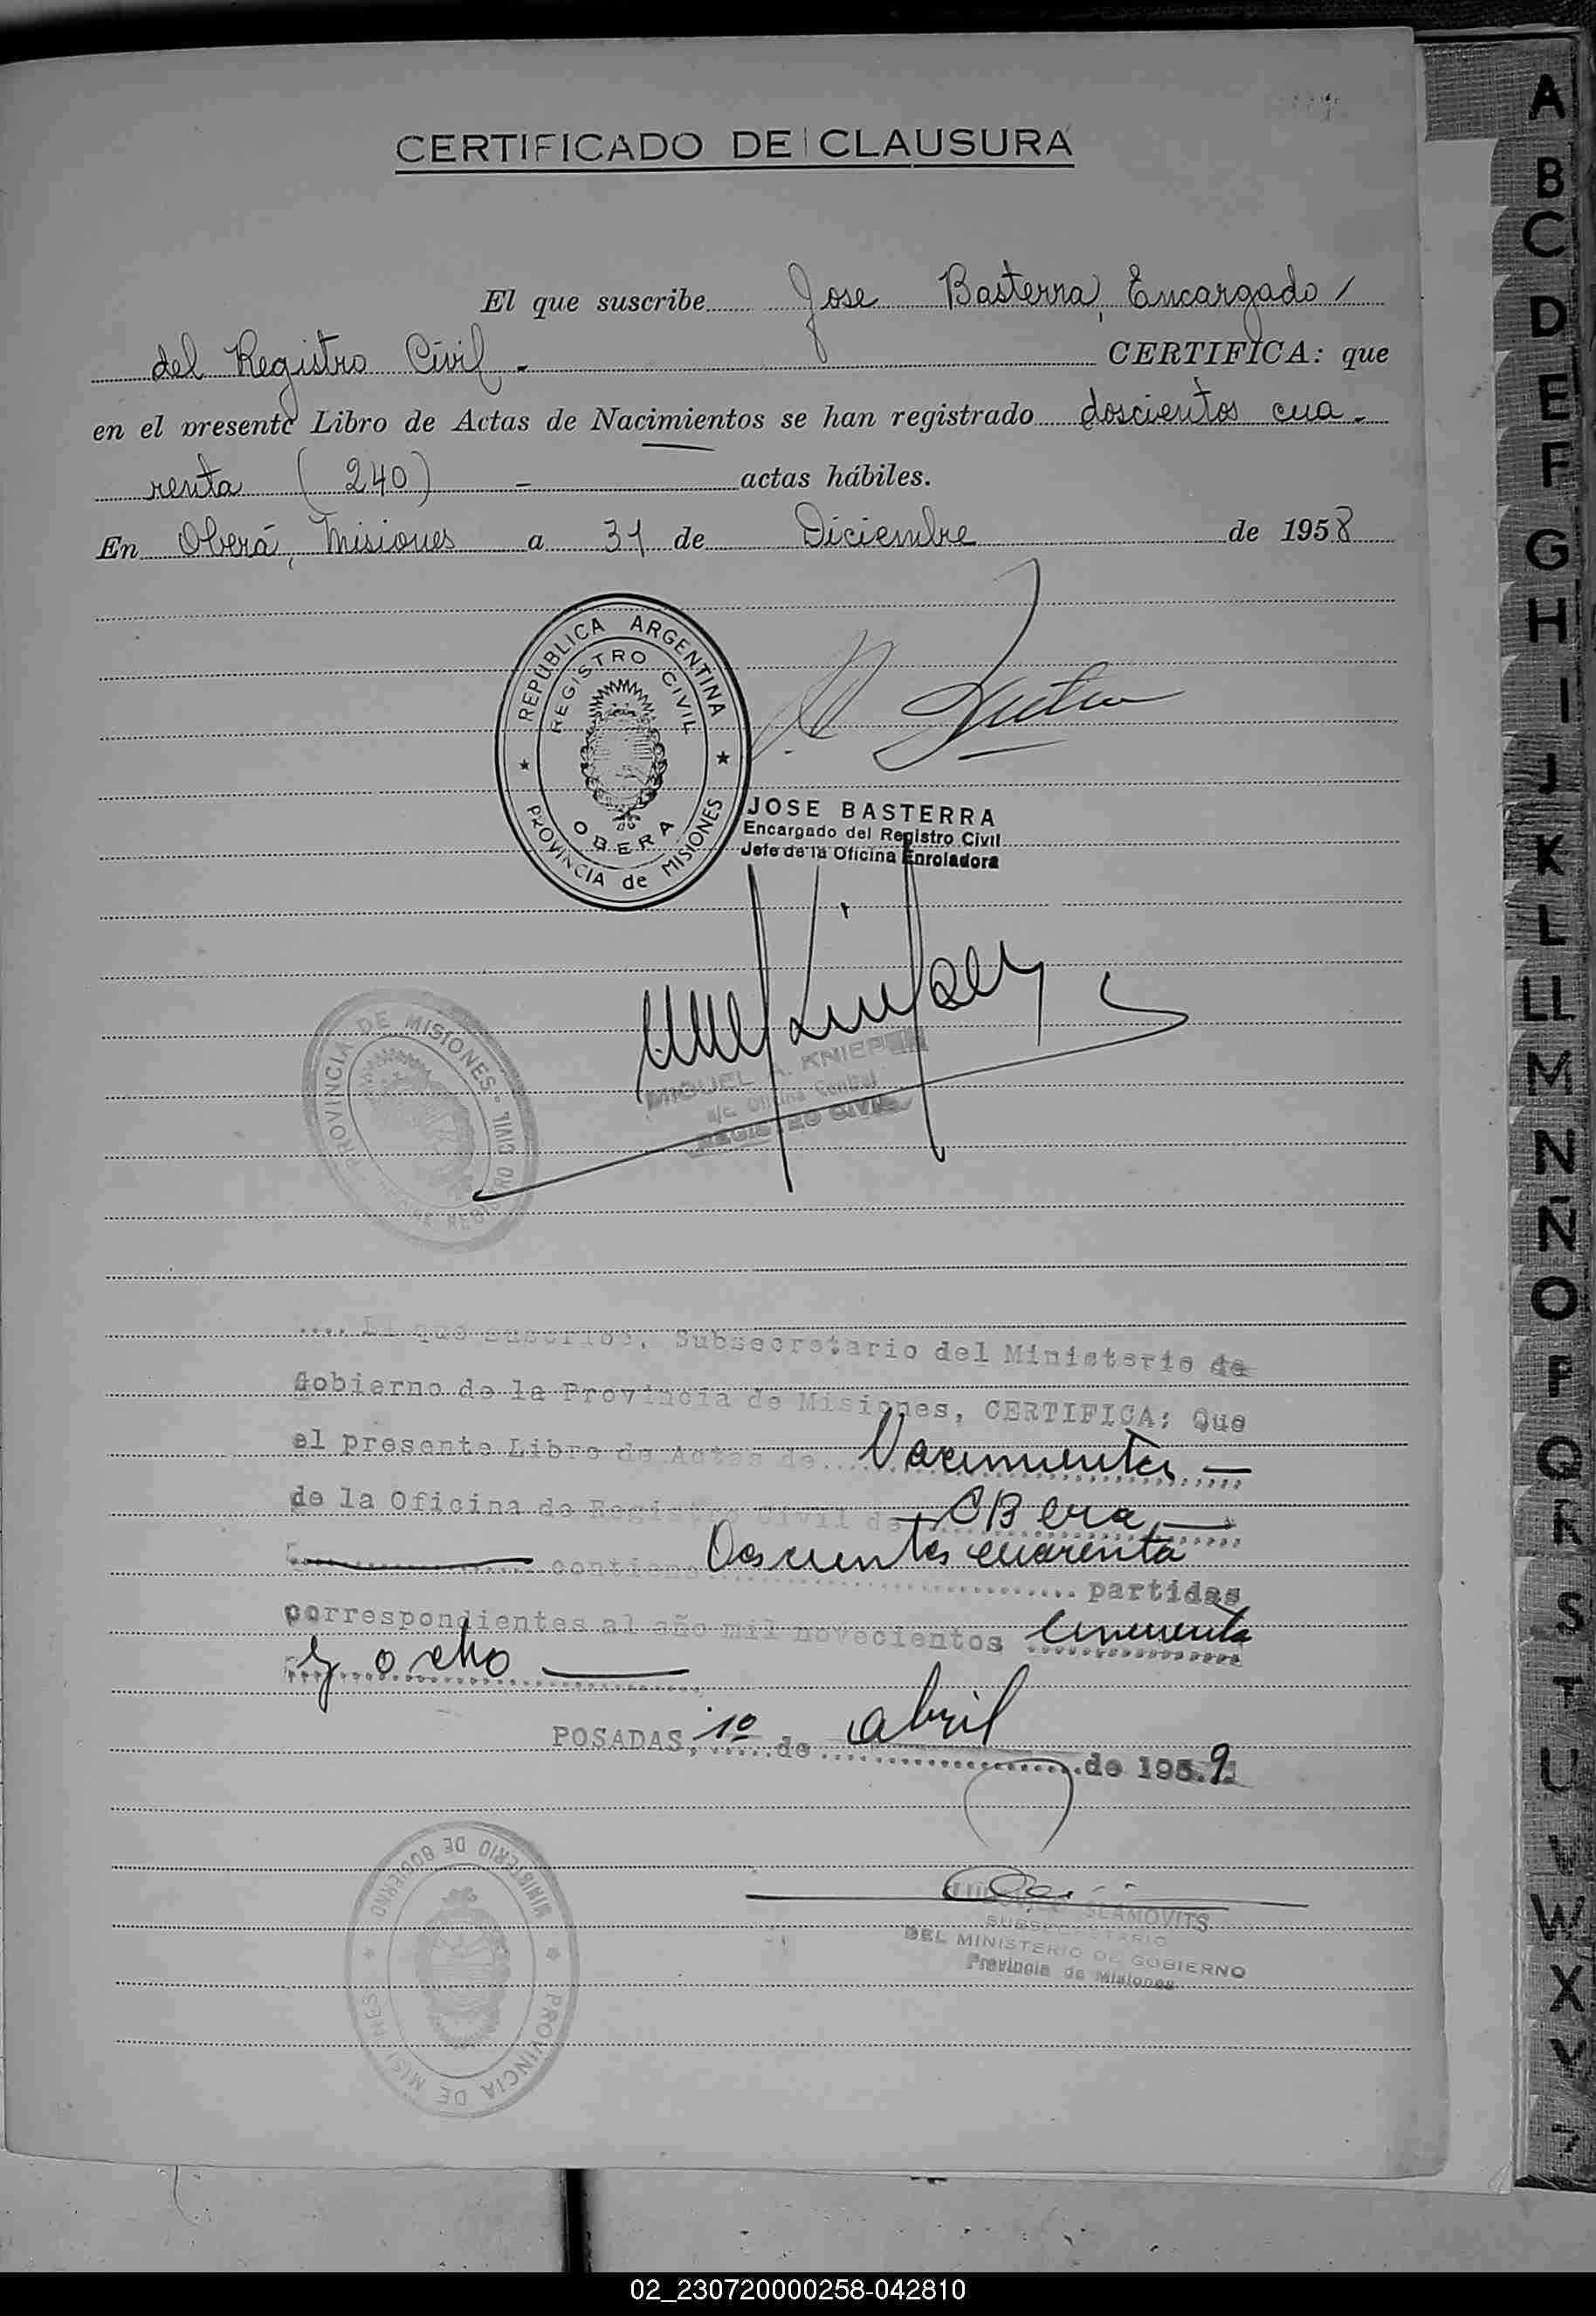 CERTIFICADO DE CLAUSURA
El que suscribe Jose Basterra, Encargado /
del Registro Civil.- CERTIFICA: que
en el presente Libro de Actas de Nacimientos se han registrado doscientos cua-
renta (240) - actas hábiles.
En Oberá, Misiones a 31 de Diciembre de 1958
REPUBLICA ARGENTINA
REGISTRO CIVIL
OBERA
PROVINCIA de MISIONES
JOSE BASTERRA
Encargado del Registro Civil
Jefe de la Oficina Enroladora
PROVINCIA DE MISIONES
REGISTRO CIVIL
MIGUEL A. KNIEPER
a/c. Oficina Central
REGISTRO CIVIL
.... El que suscribe, Subsecretario del Ministerio de
Gobierno de la Provincia de Misiones, CERTIFICA: Que
el presente Libro de Actas de Nacimientos —
de la Oficina de Registro Civil de OBera —
contiene Doscientos cuarenta
partidas
correspondientes al año mil novecientos cincuenta
y ocho —
POSADAS, 1º de abril de 1959
MINISTERIO DE GOBIERNO
PROVINCIA DE MISIONES
SLAMOVITS
SUBSECRETARIO
DEL MINISTERIO DE GOBIERNO
Provincia de Misiones
A
B
C
D
E
F
G
H
I
J
K
L
LL
M
N
Ñ
O
P
Q
R
S
T
U
V
W
X
Y
Z
02_230720000258-042810